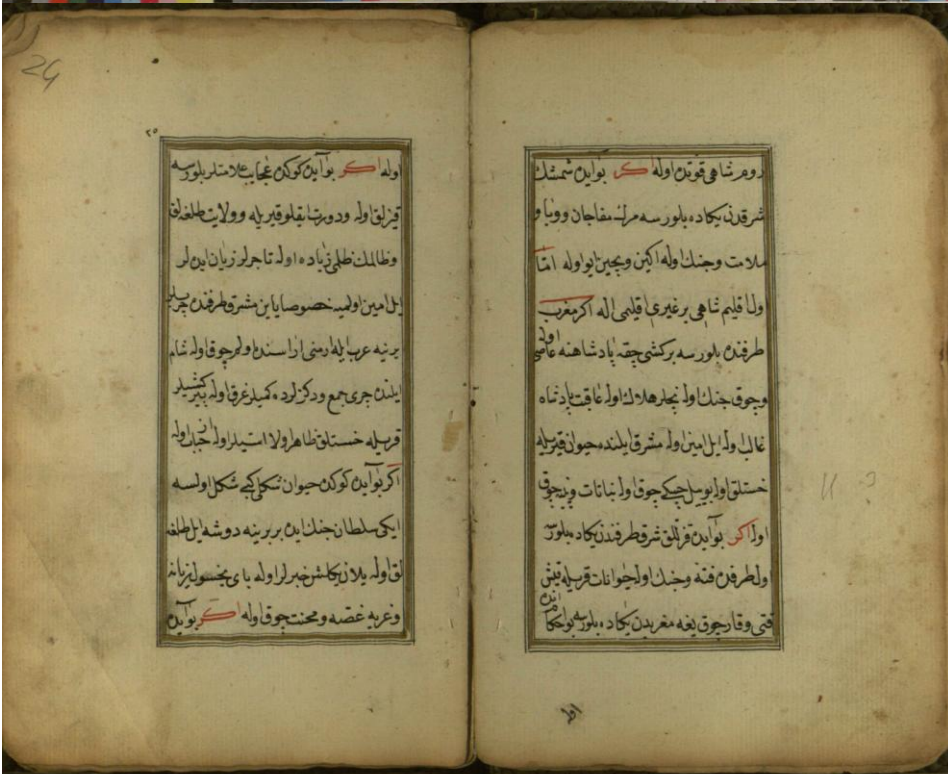 روم شاهی قوتده اوله اکر بو آیده شمسك
شرقدن یکاده بلورسه مرك مفاجان و وبا و
ملامت وجنك اوله اکین ویجین ایو اوله امّا
ول اقلیم شاهی بر غیری اقلیمی اله اکر مغرب
طرفنده بلورسه بر کشی چقه پادشاهنه عاصی اوله
وچوق جنك اوله نجلر هلاك اوله عاقبت پادشاه
غالب اوله ایل امین اوله مشرق ایلنده حیوان قیریله
خستلق اوله بو ییل چیچك چوق اوله نباتات چوق
اوله اکر بو آیده قزللق شرق طرفندن یکاده بلورسه
اول طرفده فتنه وجنك اوله حیوانات قریله قیش
قتی وقار چوق یغه مغربدن یکاده بلورسه بو احکام
اوله
٢٥
24
اوله اکر بو آیده کوکده عجایب علامتلر بلورسه
قیزلق اوله ودورت ایقلو قیریله و ولایت طلغه لق
وظالمك ظلمی زیاده اوله تاجرلر زیان ایده لر
ایل امین اولمیه خصوصا یاین مشرق طرفنده چریلر
بربنه عرب ایله ارمنی اراسنده اولم چوق اوله شام
ایلنده چری جمع ودکزلرده کمیلر غرق اوله پیر کشیلر
قریله خستلق ظاهر اولا استیلر اوله
اکر بو آیده کوکده حیوان شکلی کبی شکل اولسه
ایکی سلطان جنك ایده بربرینه دوشه ایل طلغه
لق اوله یلان یکلش خبرلر اوله بای یخسول
وعربه غصّه ومحنت چوق اوله اکر بو آیده